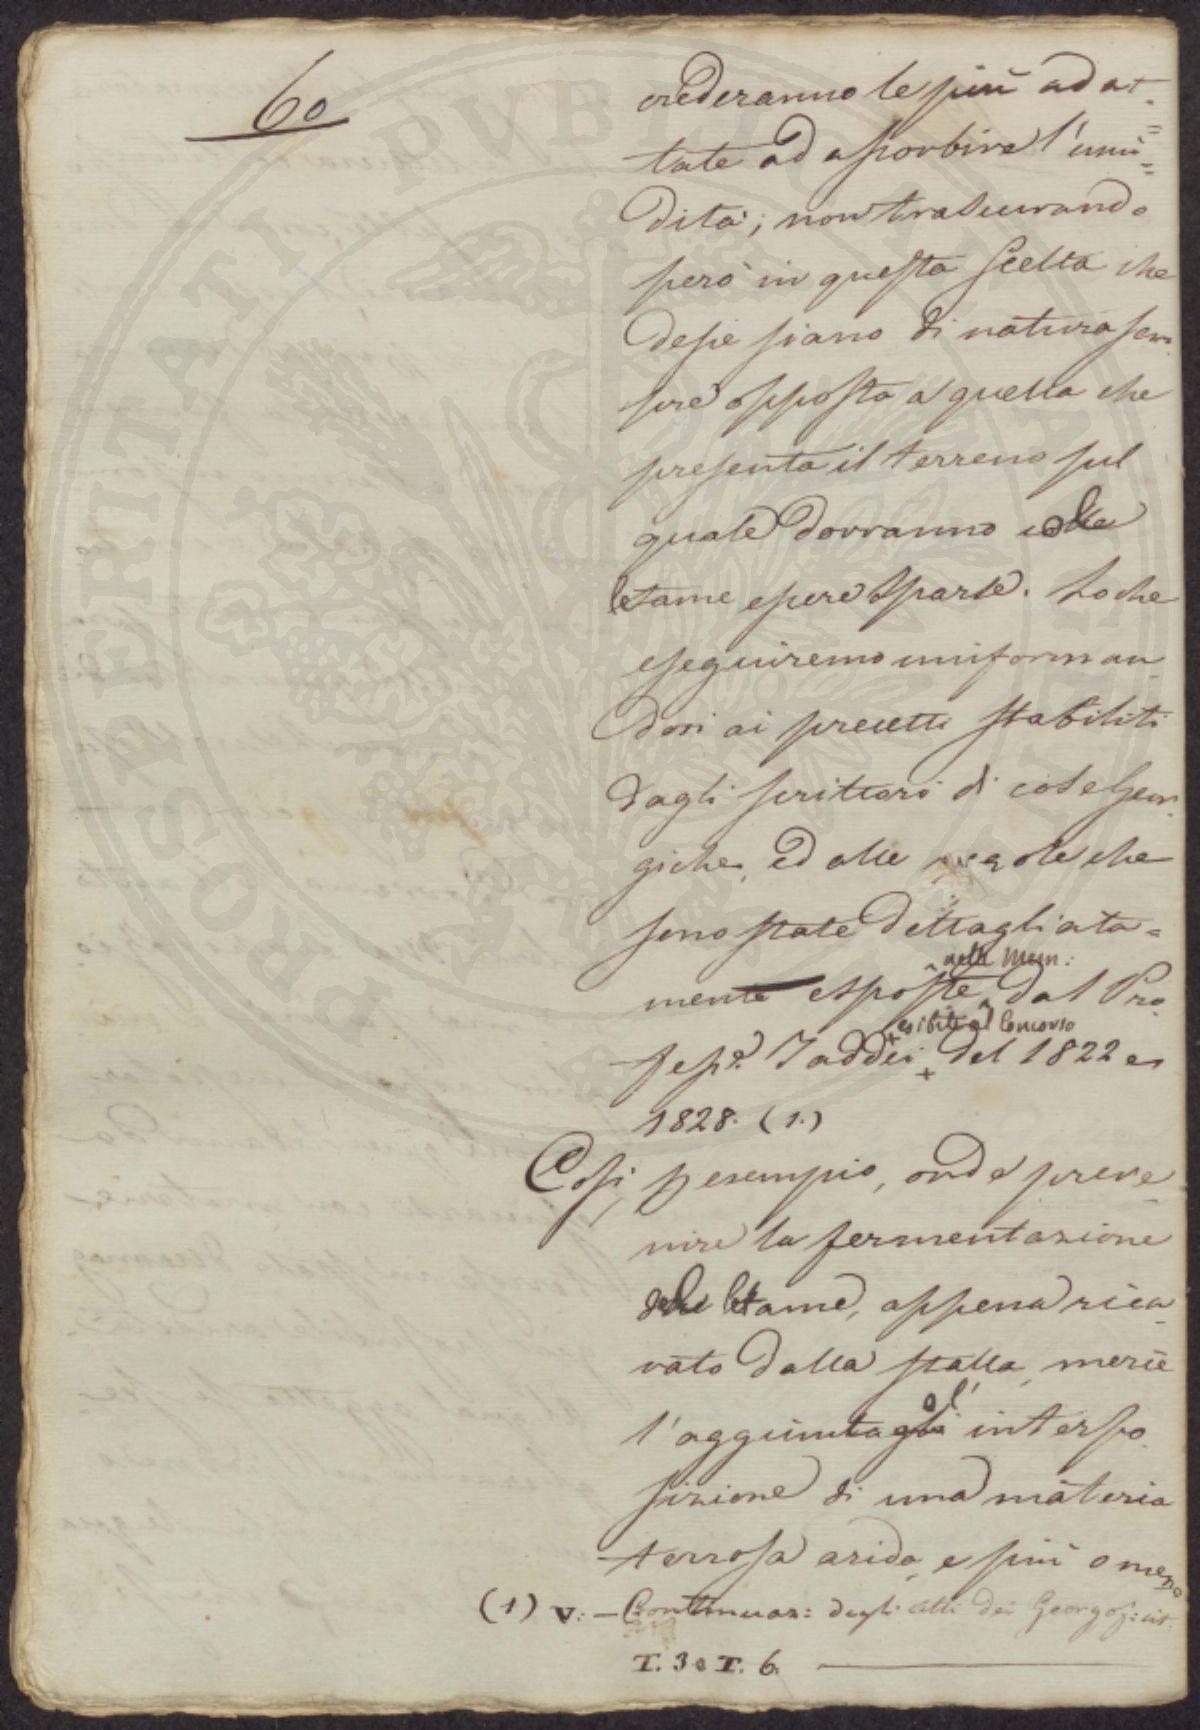 60
crederanno le più adat=
tate ad assorbire l'umi=
dità; non trascurando
però in questa scelta che
desse siano di natura sem
pre opposta a quella che
presenta il terreno sul
quale dovranno colle
letame essere sparse. Lo che
eseguiremo uniforman
doci ai precetti stabiliti
dagli scrittori di cose Geor
giche, ed alle regole che
sono state dettagliata=
nelle Mem:
mente esposte dal Pro
+ esibite al Concorso
fess.e Taddei + del 1822 e
1828. (1.)
Così, p esempio, onde preve
nire la fermentazione
del letame, appena rica
vato dalla stalla, mercè
l'aggiunta o l' interpo
sizione di una materia
terrosa arida, e più o meno
(1) V: — Continuaz: degli Atti dei Georgof: cit.
T. 3 e T. 6.
PROSPERITATI PVBLICAE AVGENDAE